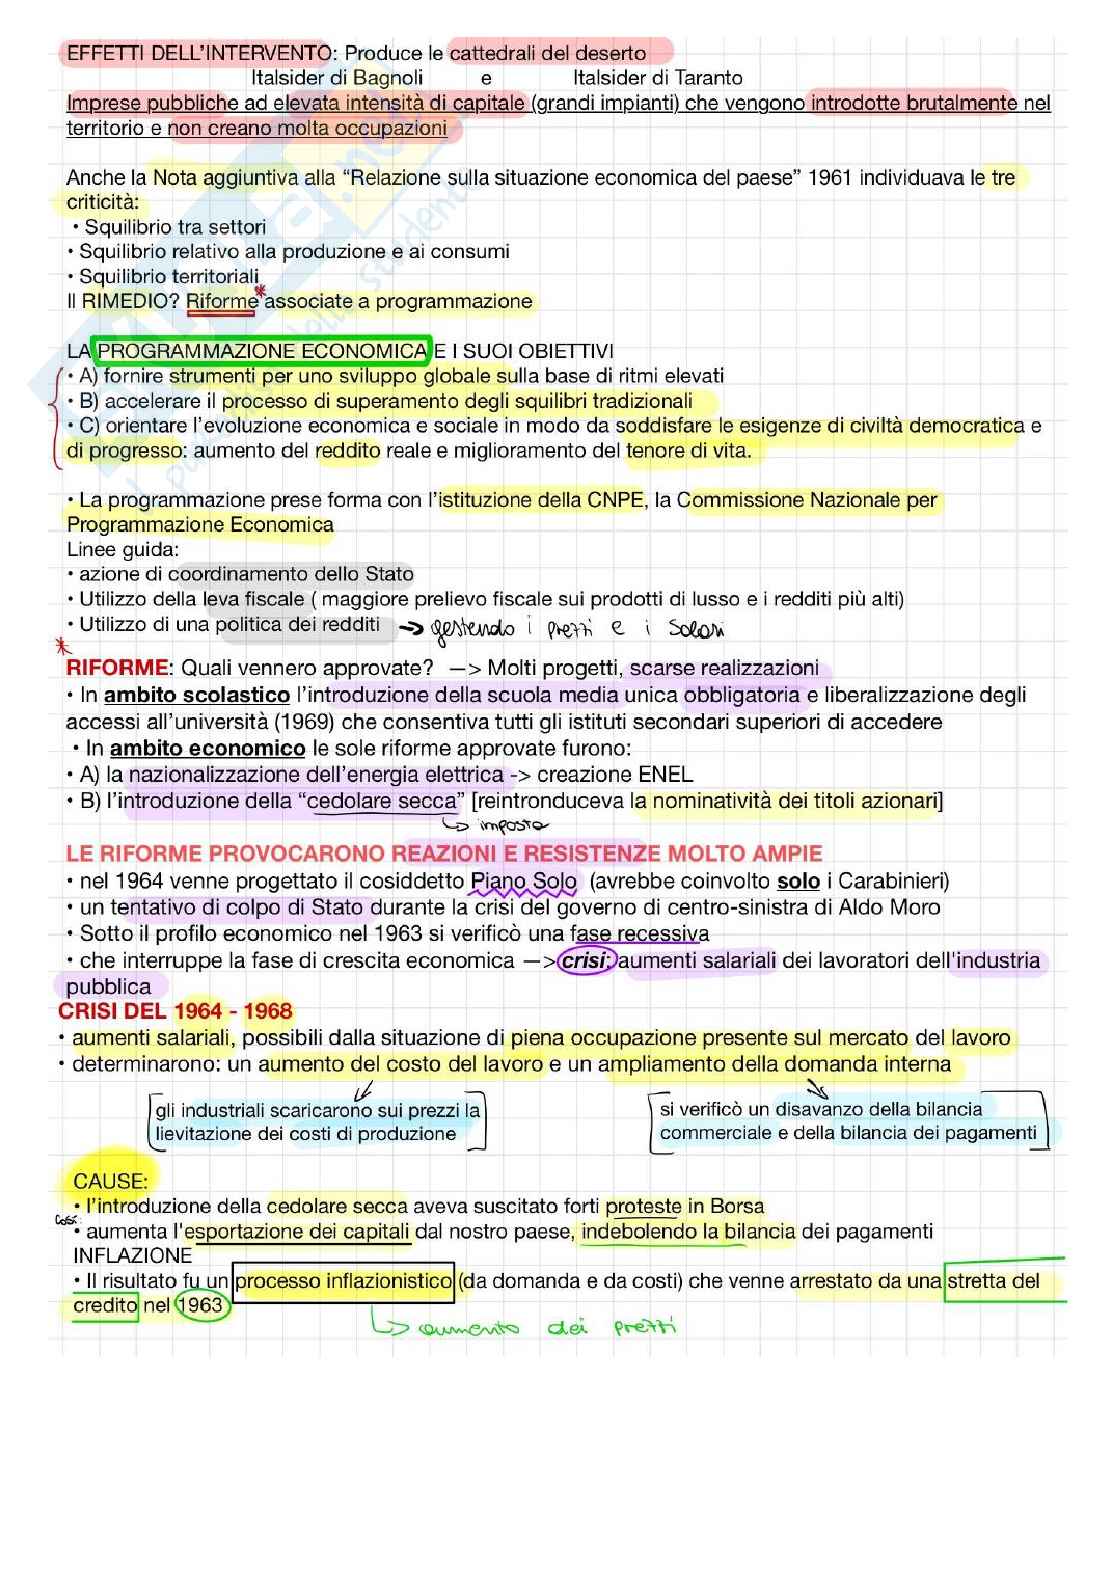 EFFETTI DELL'INTERVENTO: Produce le cattedrali del deserto
Italsider di Bagnoli e Italsider di Taranto
Imprese pubbliche ad elevata intensità di capitale (grandi impianti) che vengono introdotte brutalmente nel
territorio e non creano molta occupazioni
Anche la Nota aggiuntiva alla “Relazione sulla situazione economica del paese” 1961 individuava le tre
criticità:
• Squilibrio tra settori
• Squilibrio relativo alla produzione e ai consumi
• Squilibrio territoriali
Il RIMEDIO? Riforme* associate a programmazione
LA PROGRAMMAZIONE ECONOMICA E I SUOI OBIETTIVI
• A) fornire strumenti per uno sviluppo globale sulla base di ritmi elevati
• B) accelerare il processo di superamento degli squilibri tradizionali
• C) orientare l'evoluzione economica e sociale in modo da soddisfare le esigenze di civiltà democratica e
di progresso: aumento del reddito reale e miglioramento del tenore di vita.
• La programmazione prese forma con l'istituzione della CNPE, la Commissione Nazionale per
Programmazione Economica
Linee guida:
• azione di coordinamento dello Stato
• Utilizzo della leva fiscale ( maggiore prelievo fiscale sui prodotti di lusso e i redditi più alti)
• Utilizzo di una politica dei redditi → gestendo i prezzi e i salari
*
RIFORME: Quali vennero approvate? —> Molti progetti, scarse realizzazioni
• In ambito scolastico l'introduzione della scuola media unica obbligatoria e liberalizzazione degli
accessi all'università (1969) che consentiva tutti gli istituti secondari superiori di accedere
• In ambito economico le sole riforme approvate furono:
• A) la nazionalizzazione dell'energia elettrica -> creazione ENEL
• B) l'introduzione della “cedolare secca” [reintronduceva la nominatività dei titoli azionari]
↳ imposta
LE RIFORME PROVOCARONO REAZIONI E RESISTENZE MOLTO AMPIE
• nel 1964 venne progettato il cosiddetto Piano Solo (avrebbe coinvolto solo i Carabinieri)
• un tentativo di colpo di Stato durante la crisi del governo di centro-sinistra di Aldo Moro
• Sotto il profilo economico nel 1963 si verificò una fase recessiva
• che interruppe la fase di crescita economica —> crisi: aumenti salariali dei lavoratori dell'industria
pubblica
CRISI DEL 1964 - 1968
• aumenti salariali, possibili dalla situazione di piena occupazione presente sul mercato del lavoro
• determinarono: un aumento del costo del lavoro e un ampliamento della domanda interna
gli industriali scaricarono sui prezzi la
lievitazione dei costi di produzione
si verificò un disavanzo della bilancia
commerciale e della bilancia dei pagamenti
CAUSE:
• l'introduzione della cedolare secca aveva suscitato forti proteste in Borsa
così:
• aumenta l'esportazione dei capitali dal nostro paese, indebolendo la bilancia dei pagamenti
INFLAZIONE
• Il risultato fu un processo inflazionistico (da domanda e da costi) che venne arrestato da una stretta del
credito nel 1963
↳ aumento dei prezzi